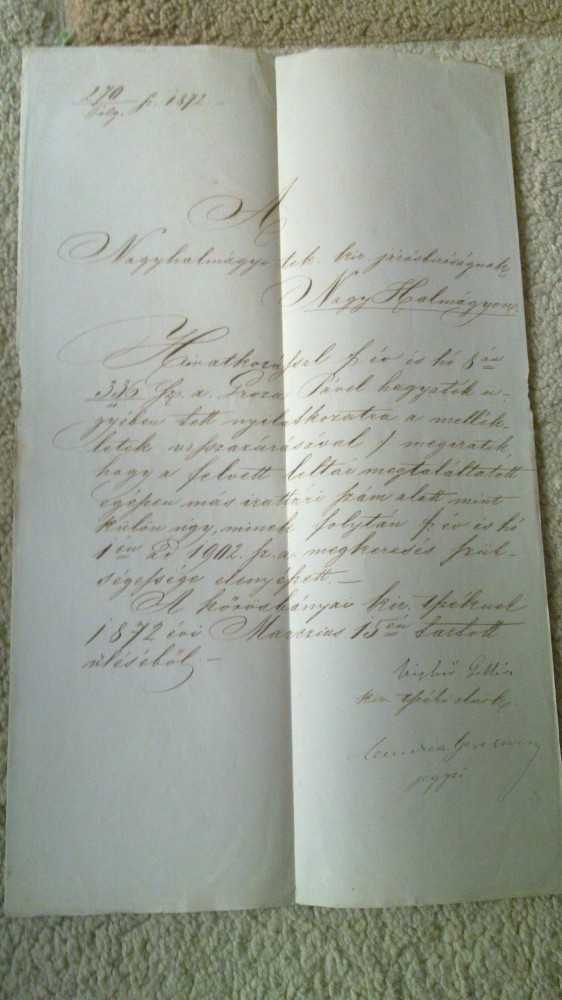 270
polg. sz. 1872.
A
Nagyhalmágyi tek. kir. járásbíróságnak
Nagy Halmágyon.
Hivatkozással f év és hó 8 án
336 sz. a. Groza Pável hagyaték ü-
gyében tett nyilatkozatra a mellék-
letek visszazárásával /. megiratik
hogy a felvett leltár megtaláltatott
egészen más irattári szám alatt mint
külön ügy, minek folytán f év és hó
1 én 1902. sz. a. megkeresés szük-
ségessége elenyészett. —
A körösbányai kir. tszéknek
1872 évi Marczius 15 én tartott
üléséből. —
kir. tszéki elnök.
jegyző